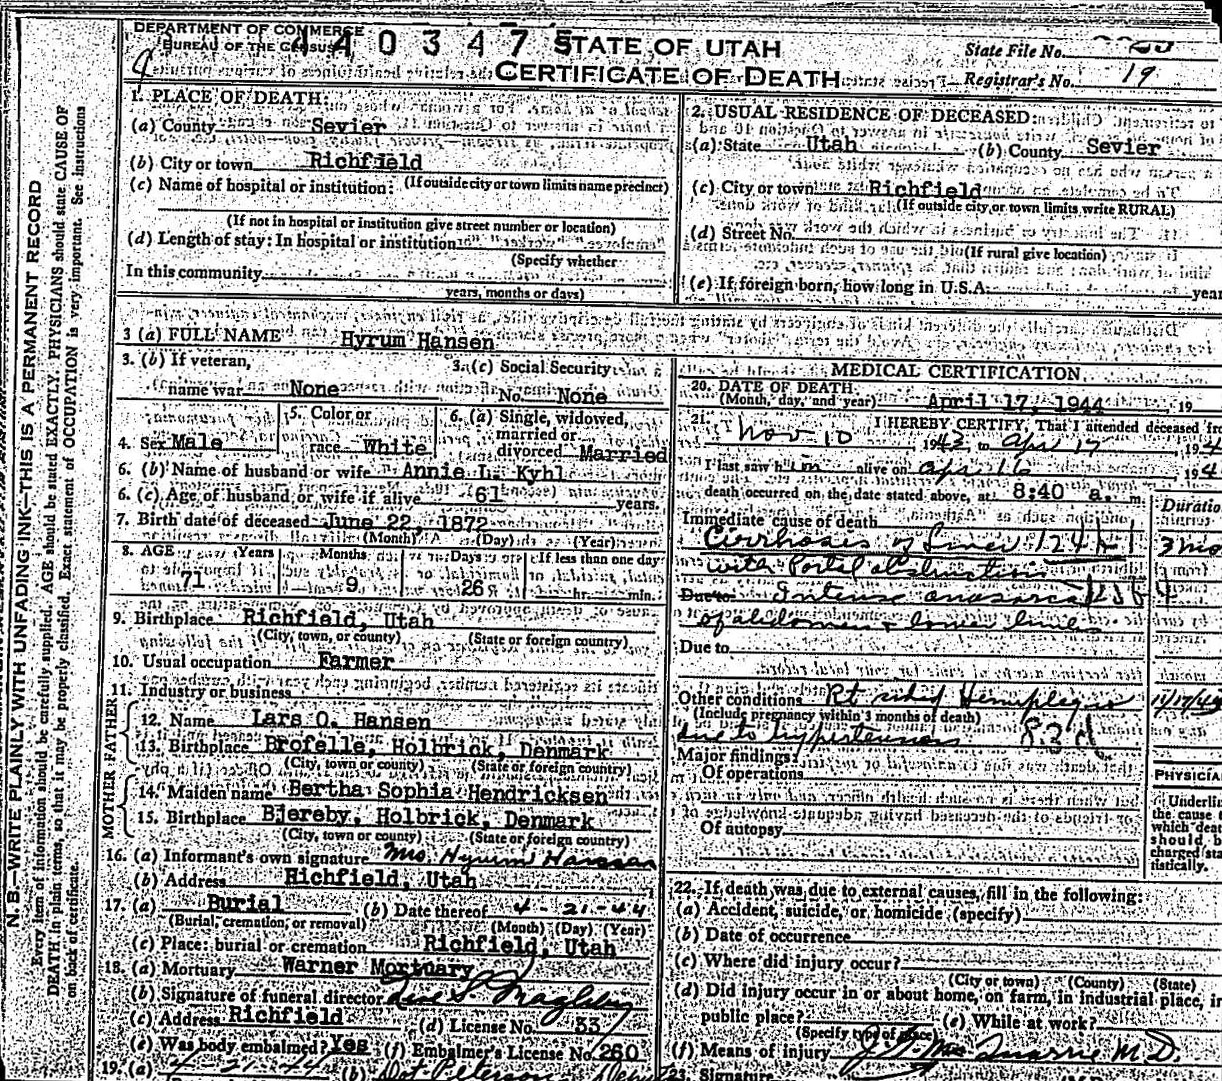 DEPARTMENT OF COMMERCE
BUREAU OF THE CENSUS
A 0 3 4 7 5
STATE OF UTAH
CERTIFICATE OF DEATH
State File No.
Registrar's No. 19
N. B.—WRITE PLAINLY WITH UNFADING INK—THIS IS A PERMANENT RECORD
Every item of information should be carefully supplied. AGE should be stated EXACTLY. PHYSICIANS should state CAUSE OF
DEATH in plain terms, so that it may be properly classified. Exact statement of OCCUPATION is very important. See instructions
on back of certificate.
1. PLACE OF DEATH:
(a) County Sevier
(b) City or town Richfield
(c) Name of hospital or institution: (If outside city or town limits name precinct)
(If not in hospital or institution give street number or location)
(d) Length of stay: In hospital or institution
(Specify whether
In this community
years, months or days)
2. USUAL RESIDENCE OF DECEASED:
(a) State Utah (b) County Sevier
(c) City or town Richfield
(If outside city or town limits write RURAL)
(d) Street No.
(If rural give location)
(e) If foreign born, how long in U.S.A. year
3 (a) FULL NAME Hyrum Hansen
3. (b) If veteran,
name war None
3. (c) Social Security
No. None
4. Sex Male
5. Color or
race White
6. (a) Single, widowed,
married or
divorced Married
6. (b) Name of husband or wife Annie L. Kyhl
6. (c) Age of husband or wife if alive 61 years.
7. Birth date of deceased June 22, 1872
(Month) (Day) (Year)
8. AGE Years Months Days If less than one day
71 9 26 hr. min.
9. Birthplace Richfield, Utah
(City, town, or county) (State or foreign country)
10. Usual occupation Farmer
11. Industry or business
FATHER
12. Name Lars O. Hansen
13. Birthplace Brofelle, Holbrick, Denmark
(City, town or county) (State or foreign country)
MOTHER
14. Maiden name Bertha Sophia Hendricksen
15. Birthplace Bjereby, Holbrick, Denmark
(City, town or county) (State or foreign country)
16. (a) Informant's own signature Mrs. Hyrum Hansen
(b) Address Richfield, Utah
17. (a) Burial (b) Date thereof 4-21-44
(Burial, cremation, or removal) (Month) (Day) (Year)
(c) Place: burial or cremation Richfield, Utah
18. (a) Mortuary Warner Mortuary
(b) Signature of funeral director
(c) Address Richfield (d) License No. 337
(e) Was body embalmed? Yes (f) Embalmer's License No. 260
19. (a) 4-21-44 (b) Dot Peterson
MEDICAL CERTIFICATION
20. DATE OF DEATH
(Month, day, and year) April 17, 1944, 19
21. I HEREBY CERTIFY, That I attended deceased fro
Nov 10 1943, to Apr 17 194
I last saw him alive on Apr 16 194
death occurred on the date stated above, at 8:40 a. m.
Duratio
Immediate cause of death
Cirrhosis of Liver 124 b 1 3 mo
with Portal obstruction
Due to Intense anasarca
of abdomen & lower limbs
Due to
Other conditions Rt sided Hemiplegia 11/17/43
(Include pregnancy within 3 months of death)
due to hypertension 83 d
Major findings:
Of operations
Of autopsy
PHYSICIA
Underlin
the cause t
which deat
should b
charged sta
tistically.
22. If death was due to external causes, fill in the following:
(a) Accident, suicide, or homicide (specify)
(b) Date of occurrence
(c) Where did injury occur?
(City or town) (County) (State)
(d) Did injury occur in or about home, on farm, in industrial place, in
public place? (e) While at work?
(Specify type of place)
(f) Means of injury
23. Signature M.D.